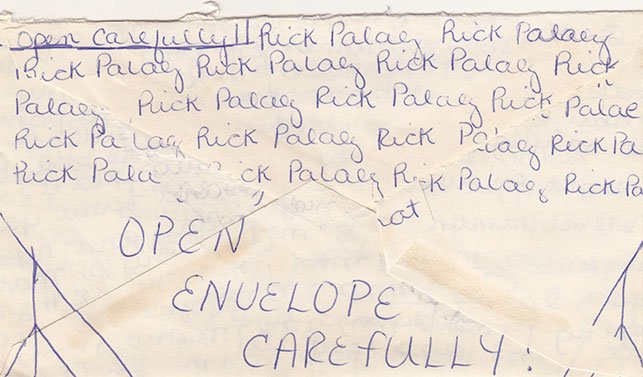 Open Carefully!! Rick Palaez Rick Palaez
Rick Palaez Rick Palaez Rick Palaez Rick
Palaez Rick Palaez Rick Palaez Rick Palae
Rick Palaez Rick Palaez Rick Palaez Rick Pa
Rick Pala ck Palaez Rick Palaez Rick Pa
OPEN
ENVELOPE
CAREFULLY!